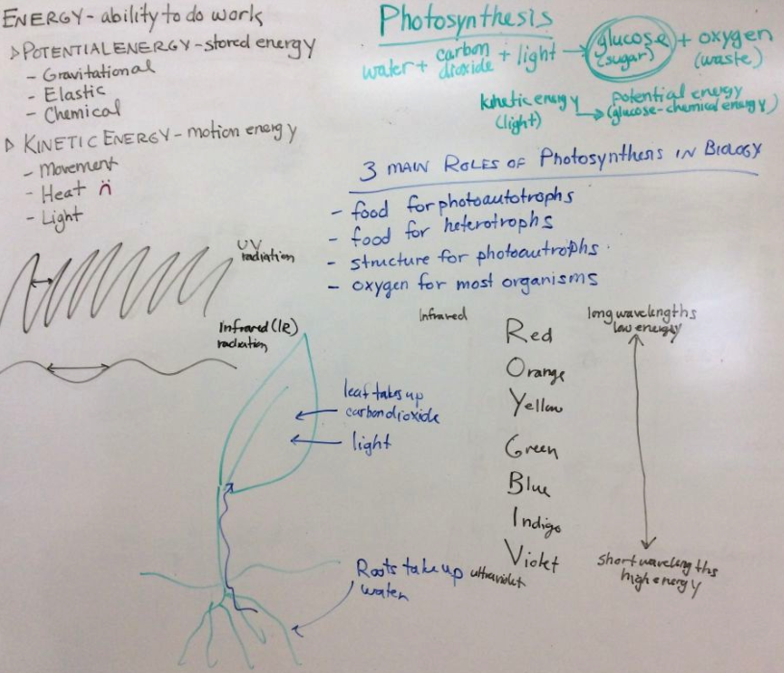 ENERGY - ability to do work
▷ POTENTIAL ENERGY - stored energy
- Gravitational
- Elastic
- Chemical
▷ KINETIC ENERGY - motion energy
- Movement
- Heat
- Light
UV
radiation
Infrared (IR)
radiation
Photosynthesis
water + carbon dioxide + light → glucose (sugar) + oxygen (waste)
kinetic energy (light) → potential energy (glucose-chemical energy)
3 MAIN ROLES OF Photosynthesis IN BIOLOGY
- food for photoautotrophs
- food for heterotrophs
- structure for photoautrophs.
- oxygen for most organisms
leaf takes up
carbon dioxide
light
Roots take up
water
Infrared
Red
Orange
Yellow
Green
Blue
Indigo
Violet
ultraviolet
long wavelengths
low energy
short wavelengths
high energy